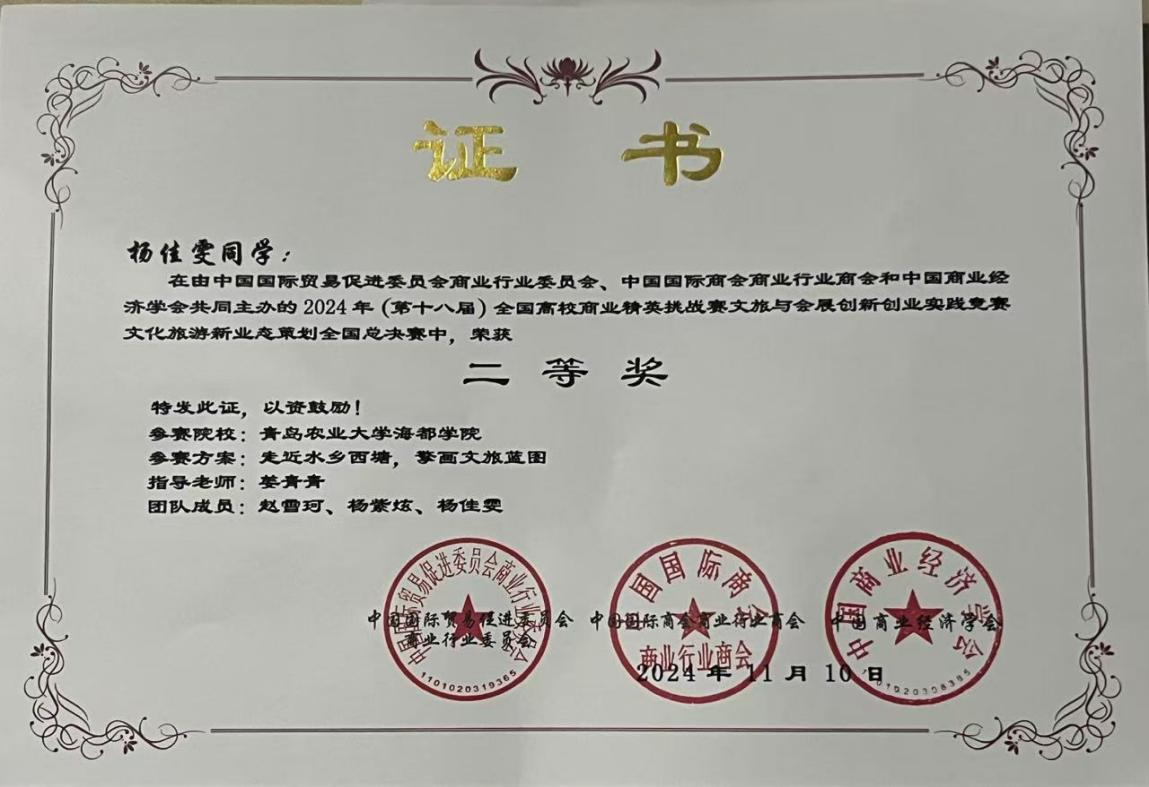 证 书
杨佳雯同学：
在由中国国际贸易促进委员会商业行业委员会、中国国际商会商业行业商会和中国商业经
济学会共同主办的 2024 年（第十八届）全国高校商业精英挑战赛文旅与会展创新创业实践竞赛
文化旅游新业态策划全国总决赛中，荣获
二 等 奖
特发此证，以资鼓励！
参赛院校：青岛农业大学海都学院
参赛方案：走近水乡西塘，擎画文旅蓝图
指导老师：姜青青
团队成员：赵雪珂、杨紫炫、杨佳雯
中国国际贸易促进委员会商业行业委员会
1101020319365
中国国际商会
商业行业商会
中国商业经济学会
1101020308385
中国国际贸易促进委员会 中国国际商会商业行业商会 中国商业经济学会
商业行业委员会
2024 年 11 月 10 日